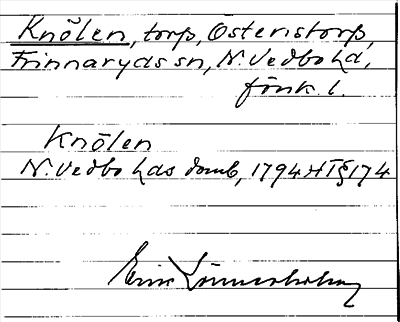 Knölen, torp, Ostenstorp,
Frinnaryds sn, N. Vedbo hd,
Jönk. l.
Knölen
N. Vedbo hds domb, 1794 HT § 174
Eric Linnerholm